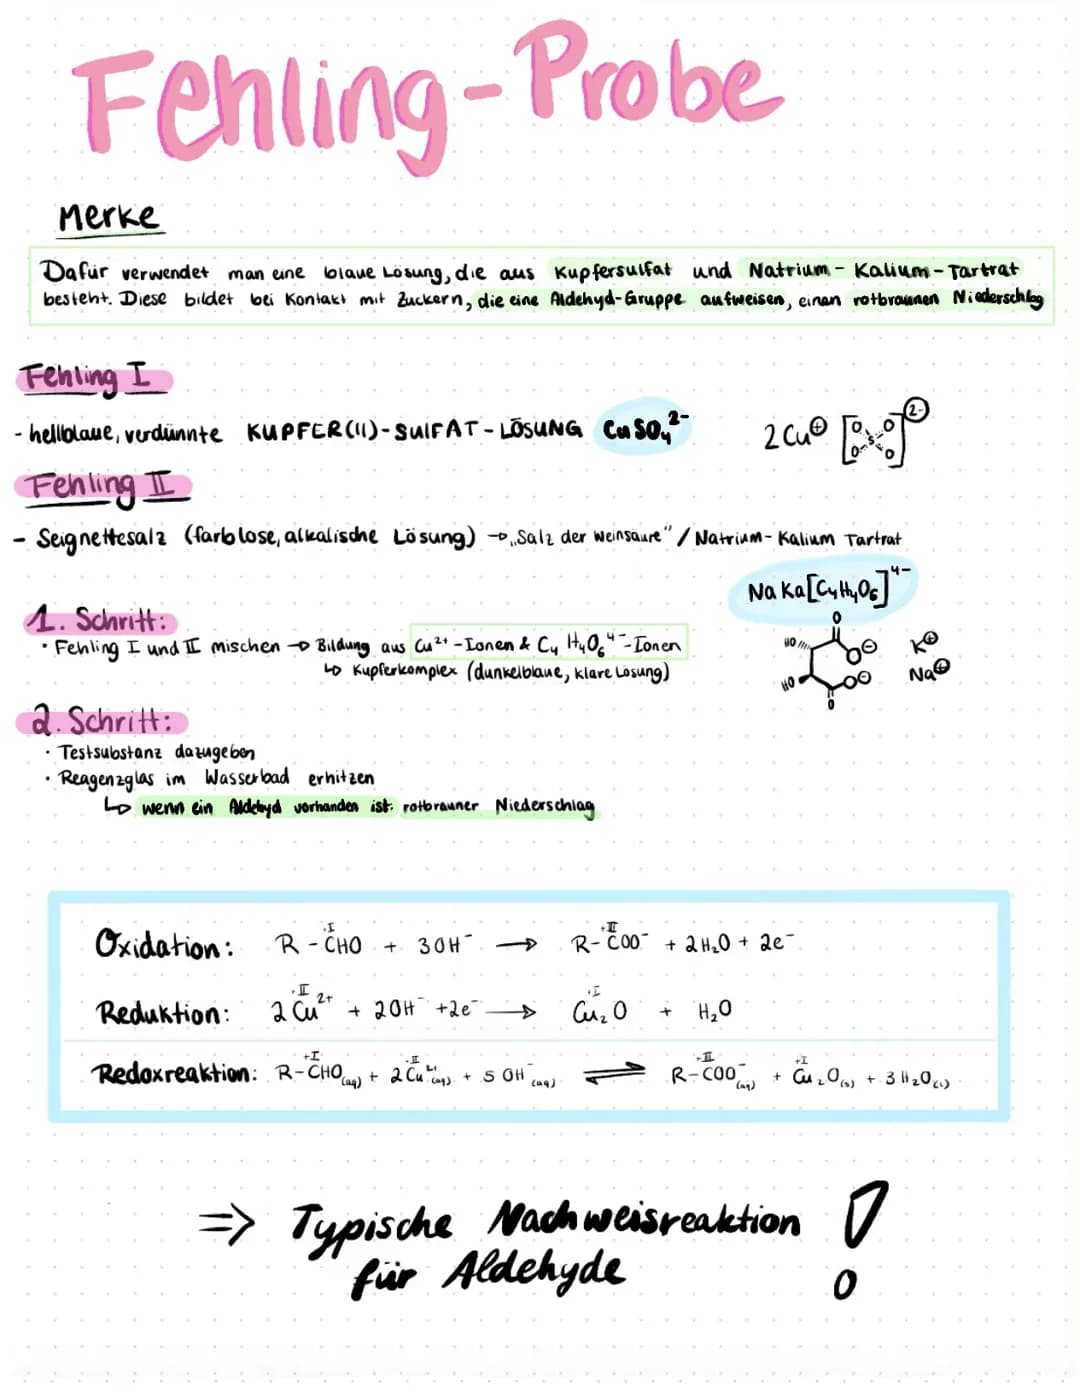 Fehling-Probe
Merke
Dafür verwendet man eine blaue Lösung, die aus Kupfersulfat und Natrium-Kalium-Tartrat
besteht. Diese bildet bei Kontakt mit Zuckern, die eine Aldehyd-Gruppe aufweisen, einen rotbraunen Niederschlag
Fehling I
- hellblaue, verdünnte KUPFER(II)-SUlFAT-LÖSUNG CuSO₄²⁻ 2Cu⊕ [O O S O O]²⁻
Fehling II
- Seignettesalz (farblose, alkalische Lösung) → „Salz der Weinsäure" / Natrium-Kalium Tartrat
NaKa[C₄H₄O₆]⁴⁻
1. Schritt:
· Fehling I und II mischen → Bildung aus Cu²⁺-Ionen & C₄H₄O₆⁴⁻-Ionen
↳ Kupferkomplex (dunkelblaue, klare Lösung)
O
HO O⊖ K⊕
HO O⊖ Na⊕
O
2. Schritt:
· Testsubstanz dazugeben
· Reagenzglas im Wasserbad erhitzen
↳ wenn ein Aldehyd vorhanden ist: rotbrauner Niederschlag
+I +III
Oxidation: R-CHO + 3OH⁻ → R-COO⁻ + 2H₂O + 2e⁻
+II +I
Reduktion: 2Cu²⁺ + 2OH⁻ + 2e⁻ → Cu₂O + H₂O
+I +II +III +I
Redoxreaktion: R-CHO(aq) + 2Cu²⁺(aq) + 5OH⁻(aq) ⇌ R-COO⁻(aq) + Cu₂O(s) + 3H₂O(l)
⇒ Typische Nachweisreaktion !
für Aldehyde